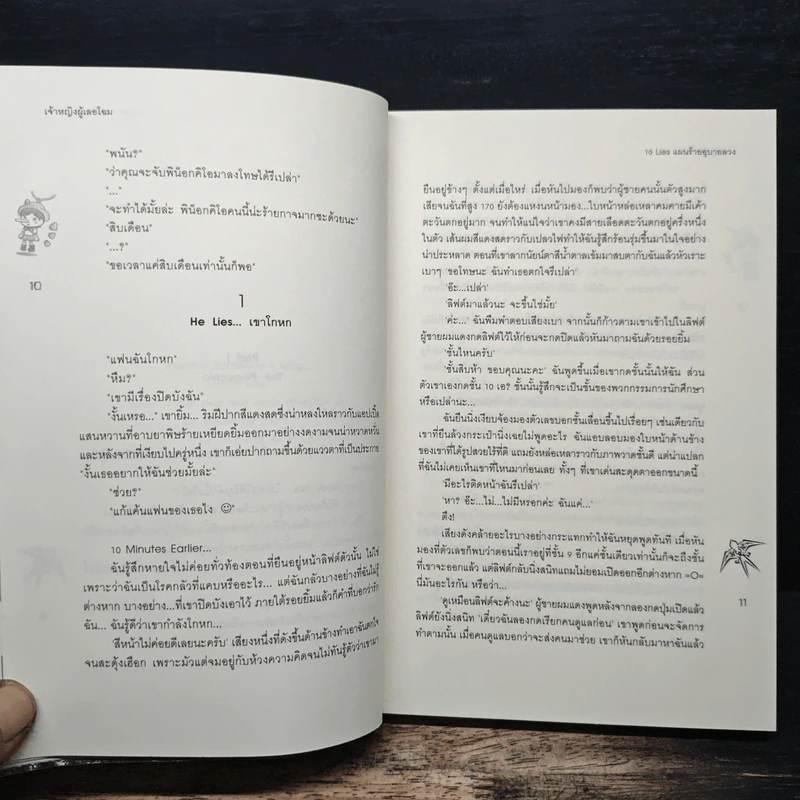 เจ้าหญิงผู้เลอโฉม
"พนัน?"
"ว่าคุณจะจับพิน็อกคิโอมาลงโทษได้รึเปล่า"
"..."
"จะทำได้มั้ยล่ะ พิน็อกคิโอคนนี้น่ะร้ายกาจมากซะด้วยนะ"
"สิบเดือน"
"...?"
"ขอเวลาแค่สิบเดือนเท่านั้นก็พอ"
10
1
He Lies... เขาโกหก
"แฟนฉันโกหก"
"หืม?"
"เขามีเรื่องปิดบังฉัน"
"งั้นเหรอ..." เขายิ้ม... ริมฝีปากสีแดงสดซึ่งน่าหลงใหลราวกับแอปเปิ้ล
แสนหวานที่อาบยาพิษร้ายเหยียดยิ้มออกมาอย่างงดงามจนน่าหวาดหวั่น
และหลังจากที่เงียบไปครู่หนึ่ง เขาก็เอ่ยปากถามขึ้นด้วยแววตาที่เป็นประกาย
"งั้นเธออยากให้ฉันช่วยมั้ยล่ะ"
"ช่วย?"
"แก้แค้นแฟนของเธอไง ☺"
10 Minutes Earlier...
ฉันรู้สึกหายใจไม่ค่อยทั่วท้องตอนที่ยืนอยู่หน้าลิฟต์ตัวนั้น ไม่ใช่
เพราะว่าฉันเป็นโรคกลัวที่แคบหรืออะไร... แต่ฉันกลัวบางอย่างที่ฉันไม่รู้
ต่างหาก บางอย่าง...ที่เขาปิดบังเอาไว้ ภายใต้รอยยิ้มแล้วก็คำที่บอกว่ารัก
ฉัน... ฉันรู้ดีว่าเขากำลังโกหก...
'สีหน้าไม่ค่อยดีเลยนะครับ' เสียงหนึ่งที่ดังขึ้นด้านข้างทำเอาฉันตกใจ
จนสะดุ้งเฮือก เพราะมัวแต่จมอยู่กับห้วงความคิดจนไม่ทันรู้ตัวว่าเขามา
10 Lies แผนร้ายอุบายลวง
ยืนอยู่ข้างๆ ตั้งแต่เมื่อไหร่ เมื่อหันไปมองก็พบว่าผู้ชายคนนั้นตัวสูงมาก
เสียจนฉันที่สูง 170 ยังต้องแหงนหน้ามอง...ใบหน้าหล่อเหลาคมคายมีเค้า
ตะวันตกอยู่มาก จนทำให้แน่ใจว่าเขาคงมีสายเลือดตะวันตกอยู่ครึ่งหนึ่ง
ในตัว เส้นผมสีแดงสดราวกับเปลวไฟทำให้ฉันรู้สึกร้อนรุ่มขึ้นมาในใจอย่าง
น่าประหลาด ตอนที่เขาลากนัยน์ตาสีน้ำตาลเข้มมาสบตากับฉันแล้วหัวเราะ
เบาๆ 'ขอโทษนะ ฉันทำเธอตกใจรึเปล่า'
'อ๊ะ...เปล่า'
'ลิฟต์มาแล้วน่ะ จะขึ้นใช่มั้ย'
'ค่ะ...' ฉันพึมพำตอบเสียงเบา จากนั้นก็ก้าวตามเขาเข้าไปในลิฟต์
ผู้ชายผมแดงกดลิฟต์ไว้ให้ก่อนจะกดปิดแล้วหันมาถามฉันด้วยรอยยิ้ม
'ชั้นไหนครับ'
'ชั้นสิบห้า ขอบคุณนะคะ' ฉันพูดขึ้นเมื่อเขากดชั้นนั้นให้ฉัน ส่วน
ตัวเขาเองกดชั้น 10 เอ๋? ชั้นนั้นรู้สึกจะเป็นชั้นของพวกกรรมการนักศึกษา
หรือเปล่านะ...
ฉันยืนนิ่งเงียบจ้องมองตัวเลขบอกชั้นเลื่อนขึ้นไปเรื่อยๆ เช่นเดียวกับ
เขาที่ยืนล้วงกระเป๋านิ่งเฉยไม่พูดอะไร ฉันแอบลอบมองใบหน้าด้านข้าง
ของเขาที่ได้รูปสวยไร้ที่ติ แถมยังหล่อเหลาราวกับภาพวาดชั้นดี แต่น่าแปลก
ที่ฉันไม่เคยเห็นเขาที่ไหนมาก่อนเลย ทั้งๆ ที่เขาเด่นสะดุดตาออกขนาดนี้
'มีอะไรติดหน้าฉันรึเปล่า'
'หา? อ๊ะ...ไม่...ไม่มีหรอกค่ะ ฉันแค่...'
ตึง!
เสียงดังคล้ายอะไรบางอย่างกระแทกทำให้ฉันหยุดพูดทันที เมื่อหัน
มองที่ตัวเลขก็พบว่าตอนนี้เราอยู่ที่ชั้น 9 อีกแค่ชั้นเดียวเท่านั้นก็จะถึงชั้น
ที่เขาจะออกแล้ว แต่ลิฟต์กลับนิ่งสนิทแถมไม่ยอมเปิดออกอีกต่างหาก =O=
นี่มันอะไรกัน หรือว่า...
'ดูเหมือนลิฟต์จะค้างนะ' ผู้ชายผมแดงพูดหลังจากลองกดปุ่มเปิดแล้ว
ลิฟต์ยังนิ่งสนิท 'เดี๋ยวฉันลองกดเรียกคนดูแลก่อน' เขาพูดก่อนจะจัดการ
ทำตามนั้น เมื่อคนดูแลบอกว่าจะส่งคนมาช่วย เขาก็หันกลับมาหาฉันแล้ว
11